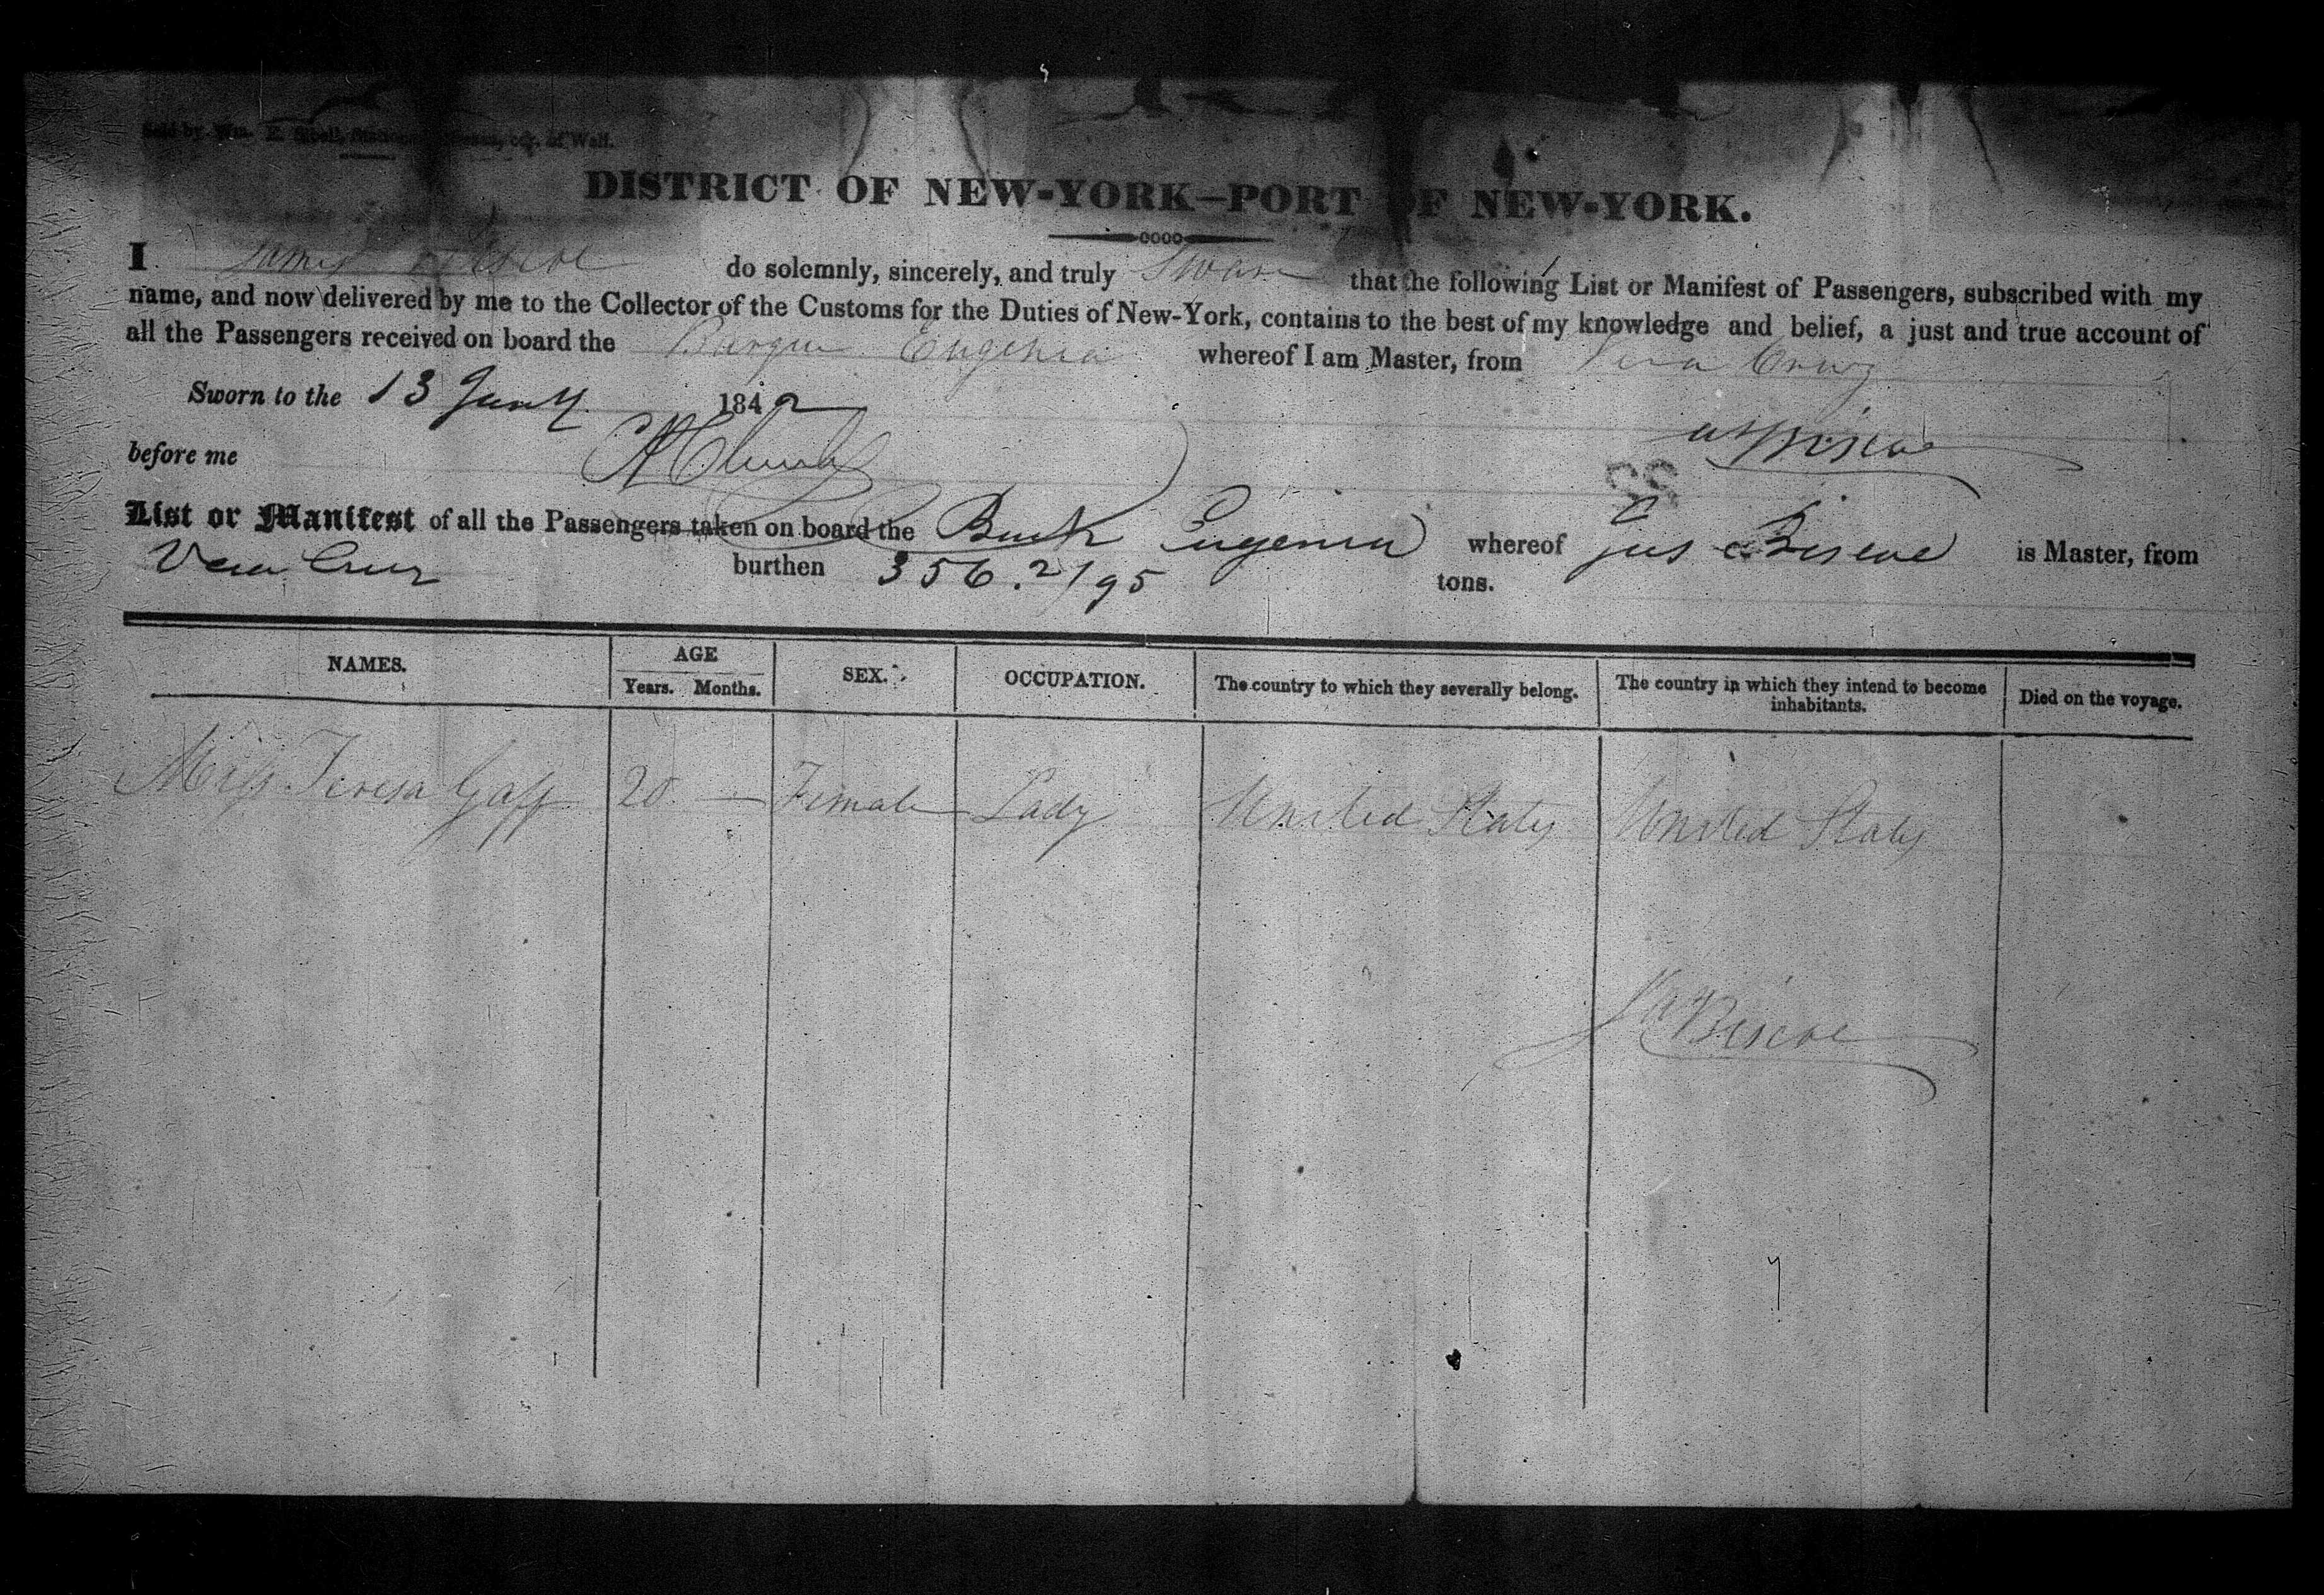 Sold by Wm. E. Sibell, Stationer, cor. of Wall.
DISTRICT OF NEW-YORK—PORT OF NEW-YORK.
I James Biscoe do solemnly, sincerely, and truly Swear that the following List or Manifest of Passengers, subscribed with my
name, and now delivered by me to the Collector of the Customs for the Duties of New-York, contains to the best of my knowledge and belief, a just and true account of
all the Passengers received on board the Barque Eugenia whereof I am Master, from Vera Cruz
Sworn to the 13 Jany 1842
Biscoe
before me
List or Manifest of all the Passengers taken on board the Bark Eugenia whereof Jas Biscoe is Master, from
Vera Cruz burthen 356.2/95 tons.
NAMES. AGE SEX. OCCUPATION. The country to which they severally belong. The country in which they intend to become inhabitants. Died on the voyage.
Years. Months.
Miss Teresa Gaff 20 — Female Lady United States United States
Jas Biscoe